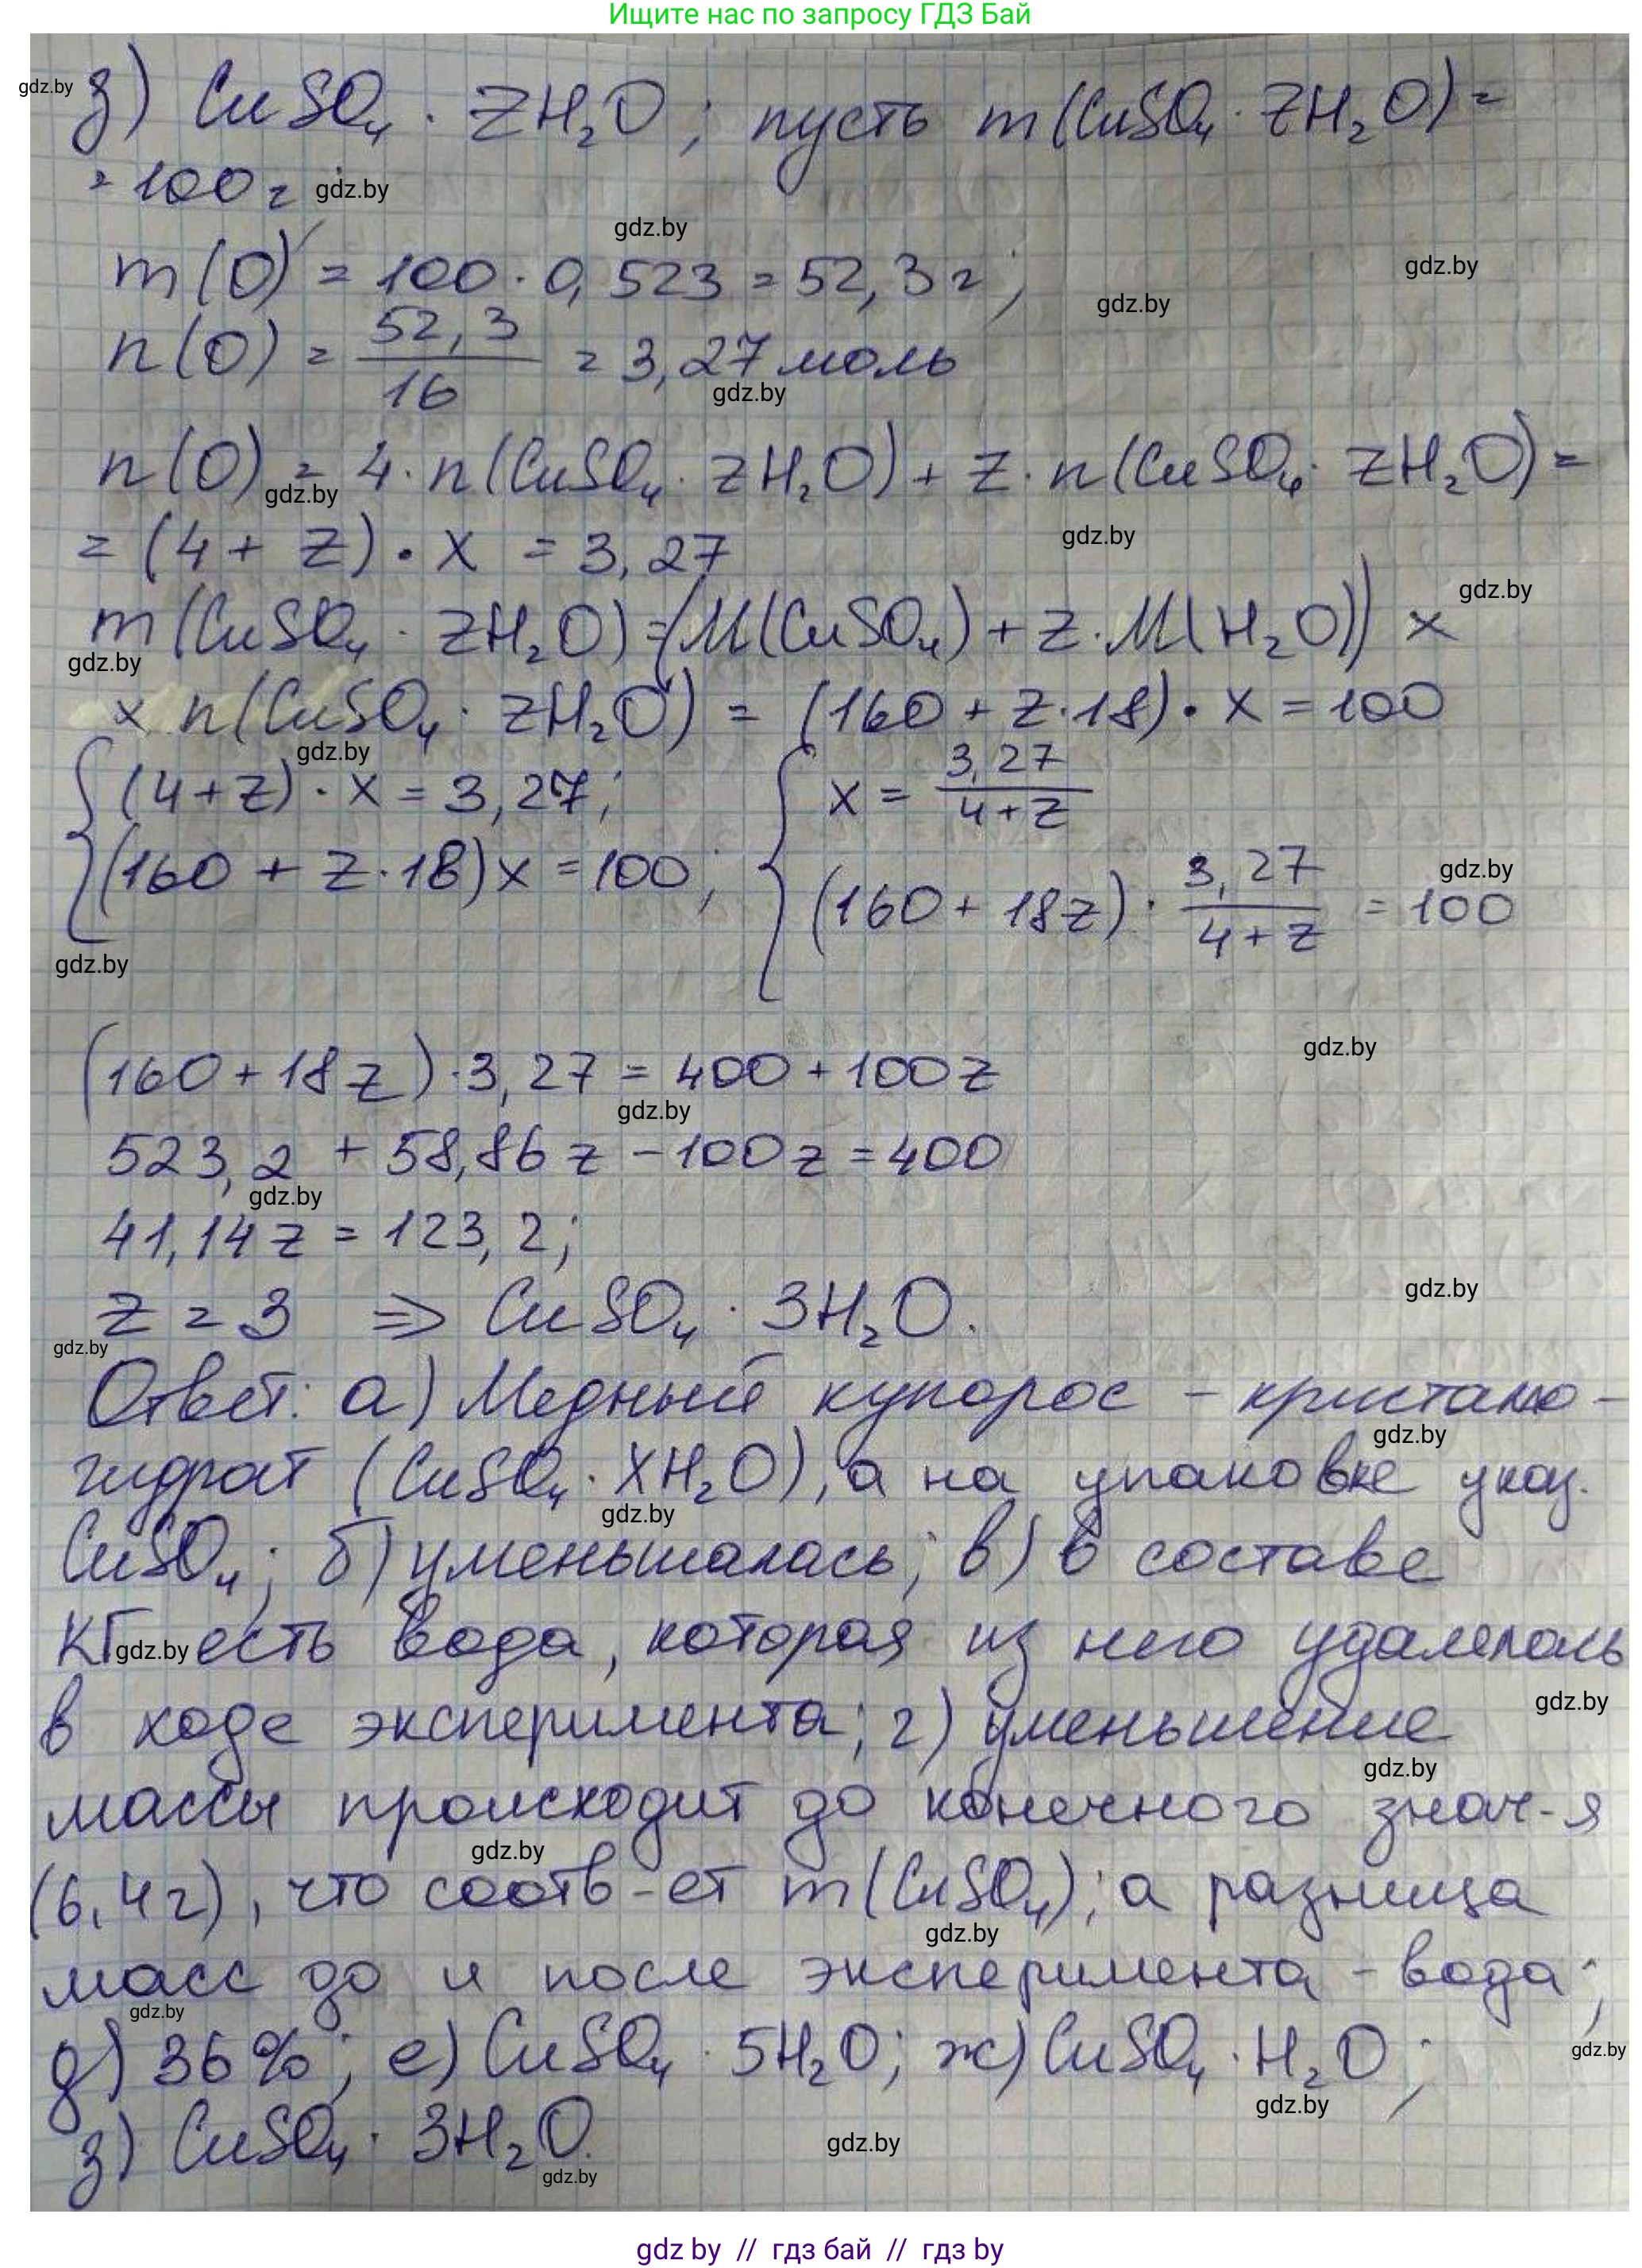 Ищите нас по запросу ГДЗ Бай
gdz.by
з) CuSO₄ · ZH₂O; пусть m(CuSO₄ · ZH₂O) =
= 100 г; gdz.by
gdz.by
m(O) = 100 · 0,523 = 52,3 г; gdz.by gdz.by
n(O) = 52,3/16 = 3,27 моль
gdz.by
n(O) = 4 · n(CuSO₄ · ZH₂O) + Z · n(CuSO₄ · ZH₂O) =
gdz.by
= (4 + Z) · X = 3,27 gdz.by
gdz.by
m(CuSO₄ · ZH₂O) = (M(CuSO₄) + Z · M(H₂O)) ×
gdz.by
× n(CuSO₄ · ZH₂O) = (160 + Z · 18) · X = 100
gdz.by
{ (4 + Z) · X = 3,27; { X = 3,27/(4 + Z)
(160 + Z · 18) X = 100; (160 + 18Z) · 3,27/(4 + Z) = 100
gdz.by
gdz.by
gdz.by
(160 + 18Z) · 3,27 = 400 + 100Z
gdz.by
523,2 + 58,86Z − 100Z = 400
gdz.by
41,14Z = 123,2;
gdz.by
Z = 3 ⇒ CuSO₄ · 3H₂O.
gdz.by
Ответ: а) Медный купорос – кристалло-
gdz.by
гидрат (CuSO₄ · XH₂O), а на упаковке указ.
gdz.by
CuSO₄; б) уменьшалась; в) в составе
КГ gdz.by есть вода, которая из него удалялась
gdz.by
в ходе эксперимента; г) уменьшение
gdz.by
массы происходит до конечного знач-я
gdz.by
(6,4 г), что соотв-ет m(CuSO₄); а разница
gdz.by
масс до и после эксперимента – вода;
gdz.by
д) 36%; е) CuSO₄ · 5H₂O; ж) CuSO₄ · H₂O; gdz.by
gdz.by
з) CuSO₄ · 3H₂O. gdz.by
gdz.by
gdz by // гдз бай // гдз by